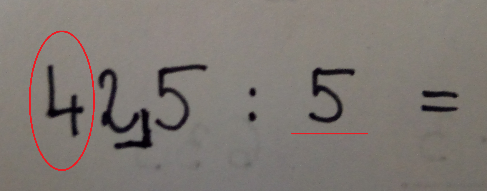 42,5 : 5 =